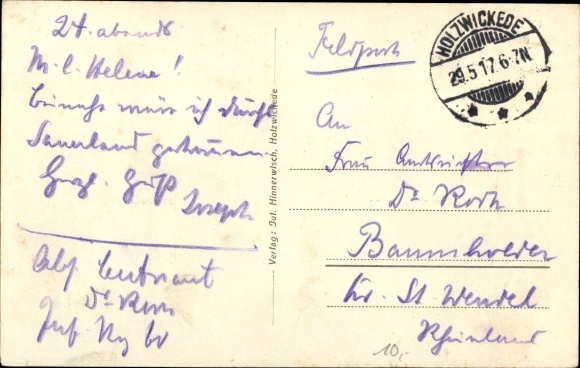 27. abends
M. l. Helene!
Beinahe wär ich durchs
Sauerland gekommen.
Herzl. Gruß
Joseph
Abs. Leutnant
Dr Koch
Inf. Rg 60
Verlag: Jul. Hinnerwisch, Holzwickede
Feldpost
HOLZWICKEDE
29.5.17. 6-7N
An
Frau Amtsrichter
Dr Koch
Baumholder
Kr. St. Wendel
Rheinland
10,-